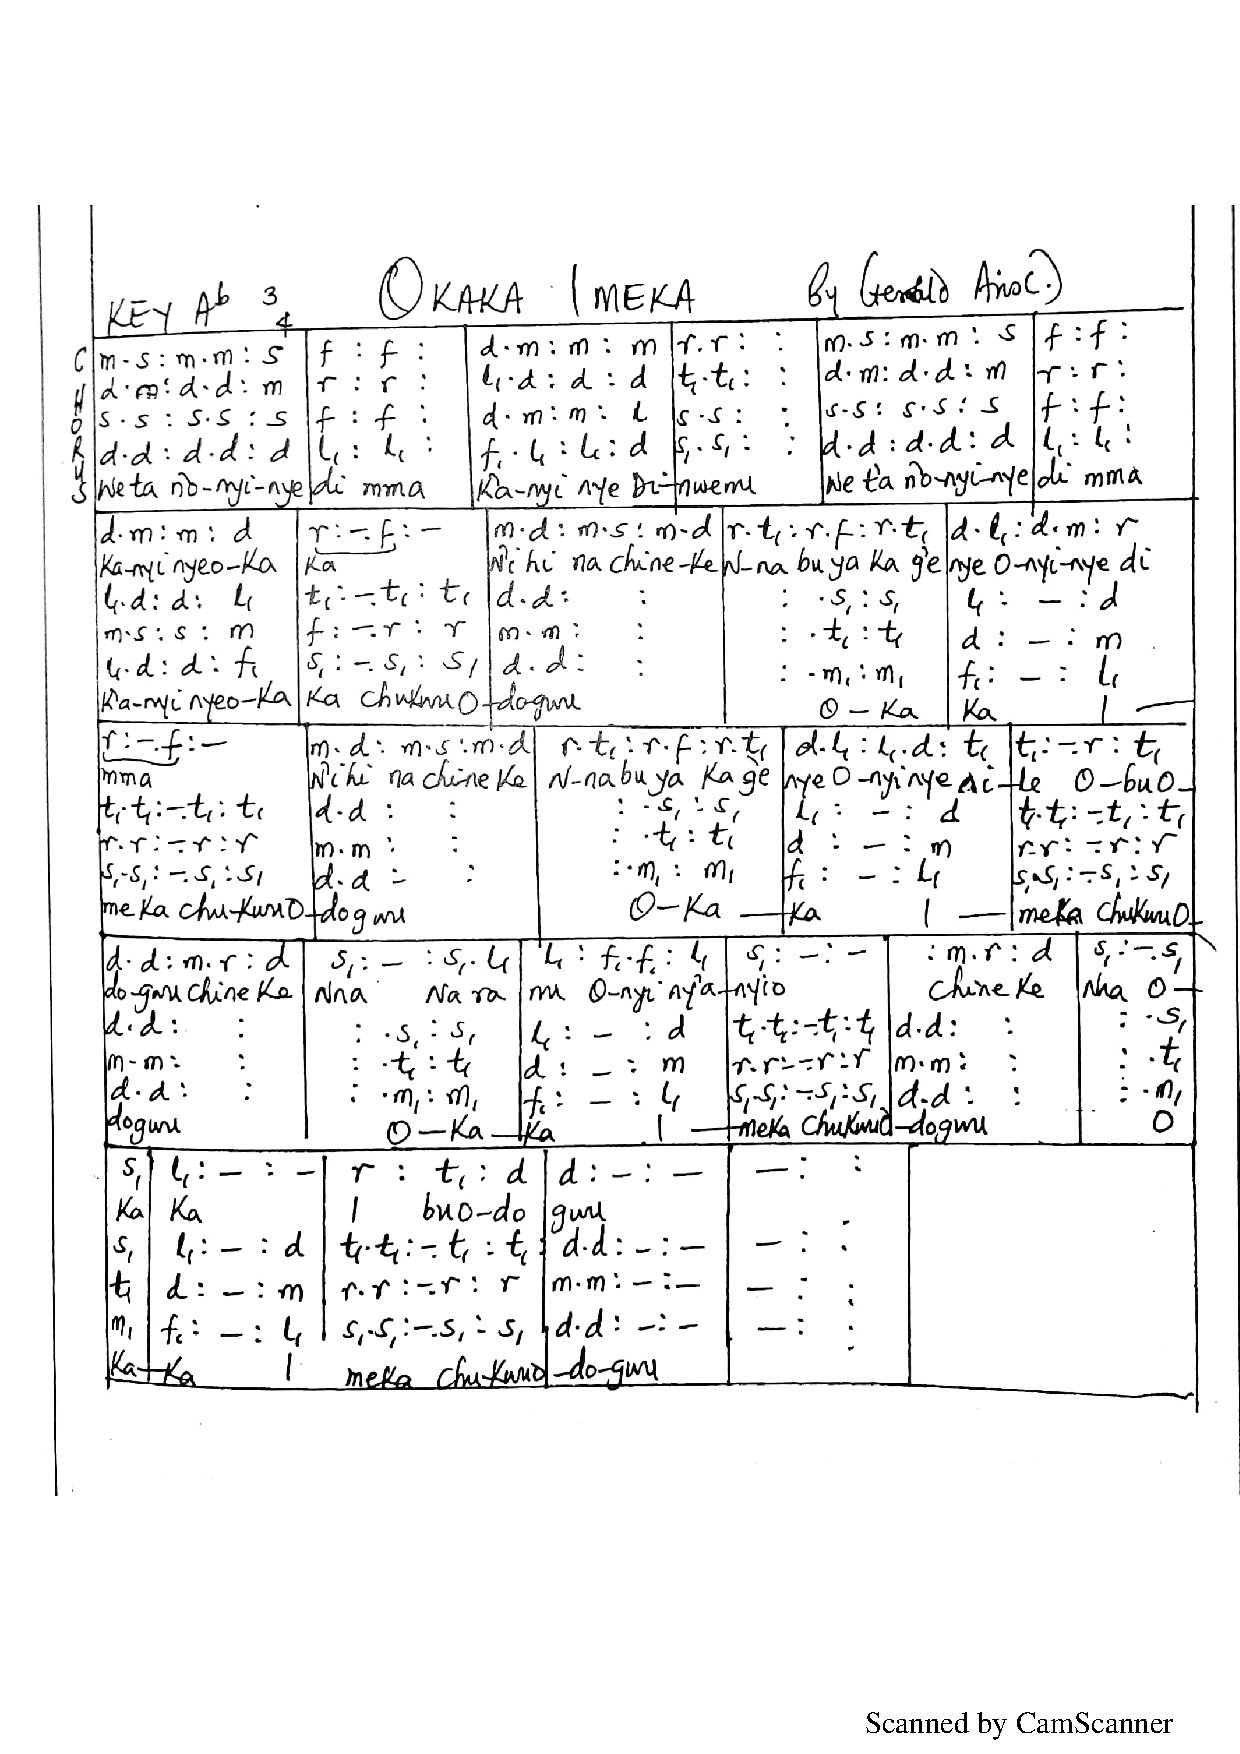 KEY Ab 3/4 OKAKA IMEKA By Gerald
CHORUS
m.s : m.m : s | f : f : | d.m : m : m | r.r : : | m.s : m.m : s | f : f :
d.m : d.d : m | r : r : | l₁.d : d : d | t₁.t₁ : : | d.m : d.d : m | r : r :
s.s : s.s : s | f : f : | d.m : m : l | s.s : : | s.s : s.s : s | f : f :
d.d : d.d : d | l₁ : l₁ : | f₁.l₁ : l₁ : d | s₁.s₁ : : | d.d : d.d : d | l₁ : l₁ :
Neta nb-nyi-nye di mma Ka-nyi nye Di-nwemu Neta nb-nyi-nye di mma
d.m : m : d | r : -.f : - | m.d : m.s : m.d | r.t₁ : r.f : r.t₁ | d.l₁ : d.m : r
Ka-nyi nyeo-Ka Ka N'i hi na chine-Ke N-na bu ya Ka ge nye O-nyi-nye di
l₁.d : d : l₁ | t₁ : -.t₁ : t₁ | d.d : : | : .s₁ : s₁ | l₁ : - : d
m.s : s : m | f : -.r : r | m.m : : | : .t₁ : t₁ | d : - : m
l₁.d : d : f₁ | s₁ : -.s₁ : s₁ | d.d : : | : .m₁ : m₁ | f₁ : - : l₁
Ka-nyi nyeo-Ka Ka chukwu O-dogwu O-Ka Ka I
r : -.f : - | m.d : m.s : m.d | r.t₁ : r.f : r.t₁ | d.l₁ : l₁.d : t₁ | t₁ : -.r : t₁
mma N'i hi na chine Ke N-na bu ya Ka ge nye O-nyi nye di-le O-buO-
t₁.t₁ : -.t₁ : t₁ | d.d : : | : .s₁ : s₁ | l₁ : - : d | t₁.t₁ : -.t₁ : t₁
r.r : -.r : r | m.m : : | : .t₁ : t₁ | d : - : m | r.r : -.r : r
s₁.s₁ : -.s₁ : s₁ | d.d : : | : .m₁ : m₁ | f₁ : - : l₁ | s₁.s₁ : -.s₁ : s₁
meKa chu-kwuO-dogwu O-Ka-Ka I-meKa chukwuO-
d.d : m.r : d | s₁ : - : s₁.l₁ | l₁ : f₁.f₁ : l₁ | s₁ : - : - | : m.r : d | s₁ : -.s₁
do-gwu chine Ke Nna Na ra mu O-nyi ny'a-nyio chine Ke Nna O-
d.d : : | : .s₁ : s₁ | l₁ : - : d | t₁.t₁ : -.t₁ : t₁ | d.d : : | : .s₁
m.m : : | : .t₁ : t₁ | d : - : m | r.r : -.r : r | m.m : : | : .t₁
d.d : : | : .m₁ : m₁ | f₁ : - : l₁ | s₁.s₁ : -.s₁ : s₁ | d.d : : | : .m₁
dogwu O-Ka-Ka I-meKa chukwuO-dogwu O
s₁ | l₁ : - : - | r : t₁ : d | d : - : - | - : :
Ka Ka I buO-do gwu
s₁ | l₁ : - : d | t₁.t₁ : -.t₁ : t₁ | d.d : - : - | - : :
t₁ | d : - : m | r.r : -.r : r | m.m : - : - | - : :
m₁ | f₁ : - : l₁ | s₁.s₁ : -.s₁ : s₁ | d.d : - : - | - : :
Ka-Ka I meKa chu-KwuO-do-gwu
Scanned by CamScanner